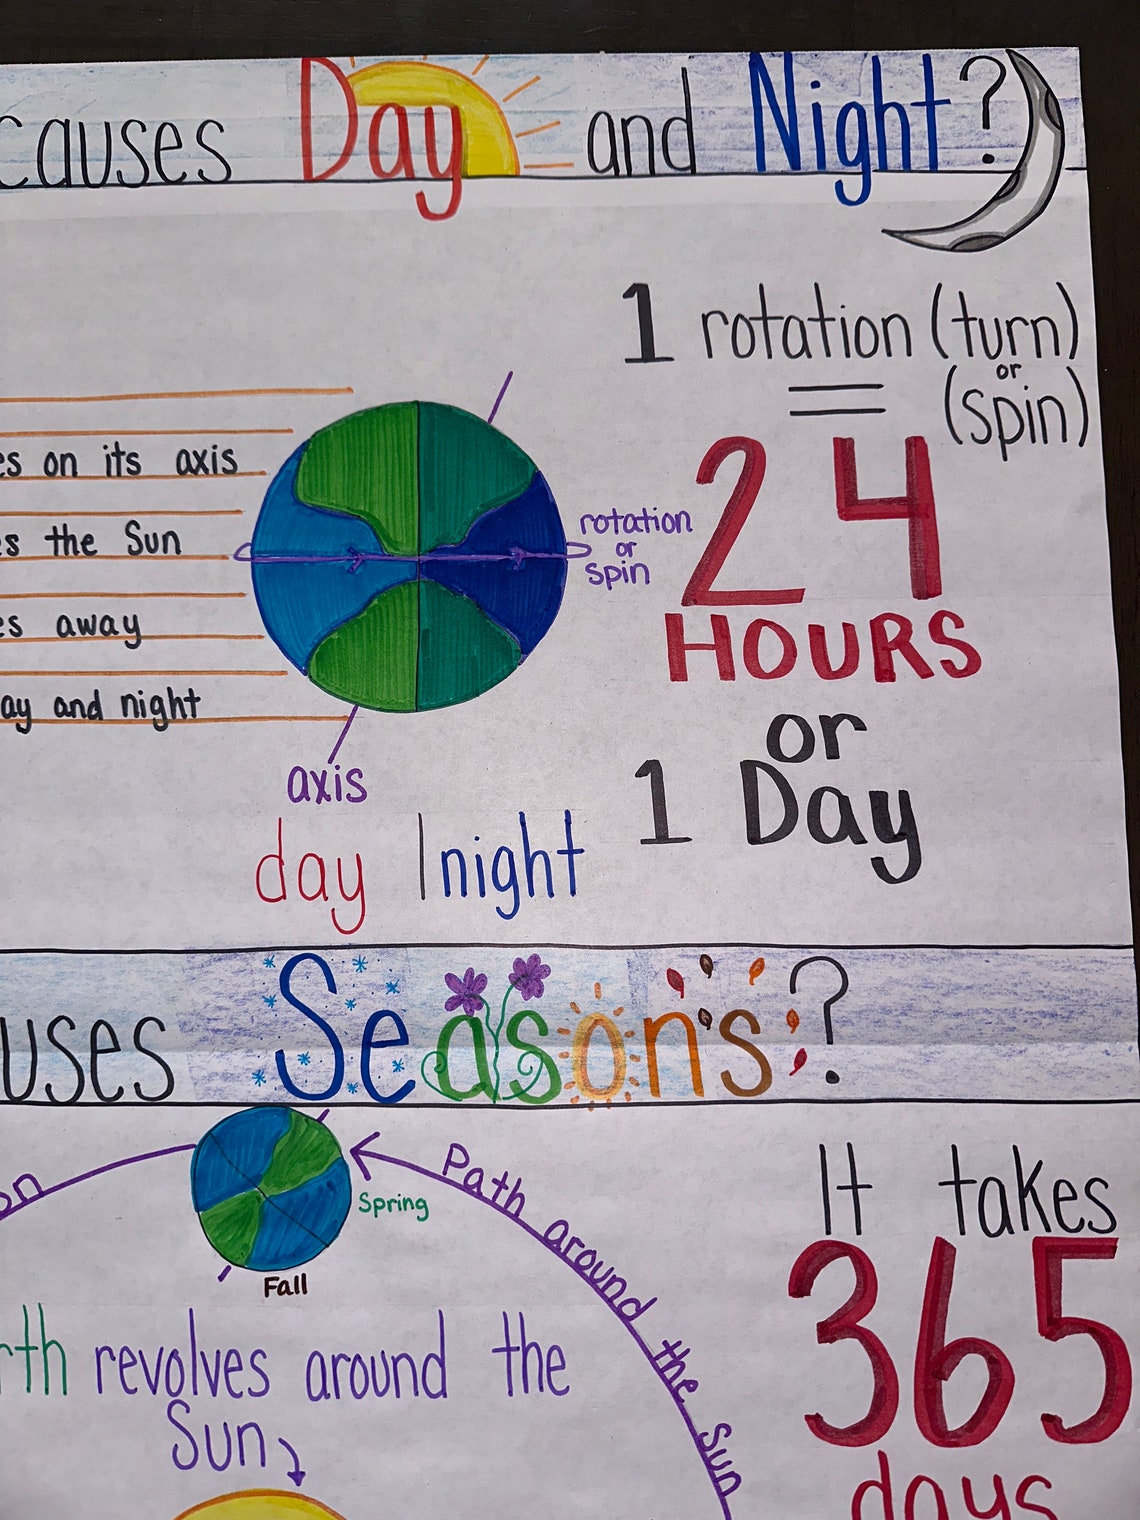 causes Day and Night?
1 rotation (turn)
or
= (spin)
24
HOURS
or
1 Day
es on its axis
es the Sun
es away
ay and night
rotation
or
spin
axis
day | night
uses Seasons?
on
Path around the Sun
Spring
Fall
rth revolves around the
Sun
It takes
365
days